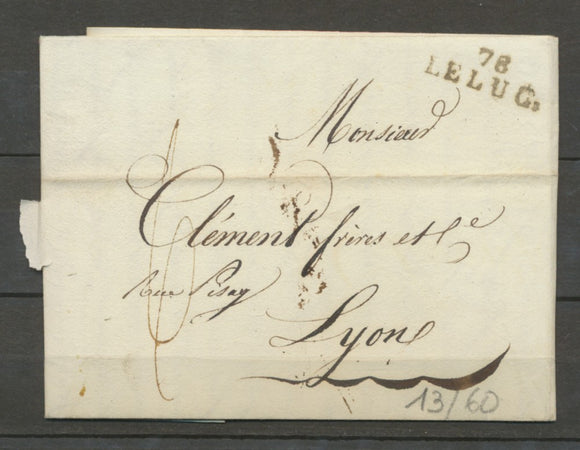 78
LELUG.
Monsieur
Clément frères et Cⁱᵉ
Rue Pisay
Lyon
13/60